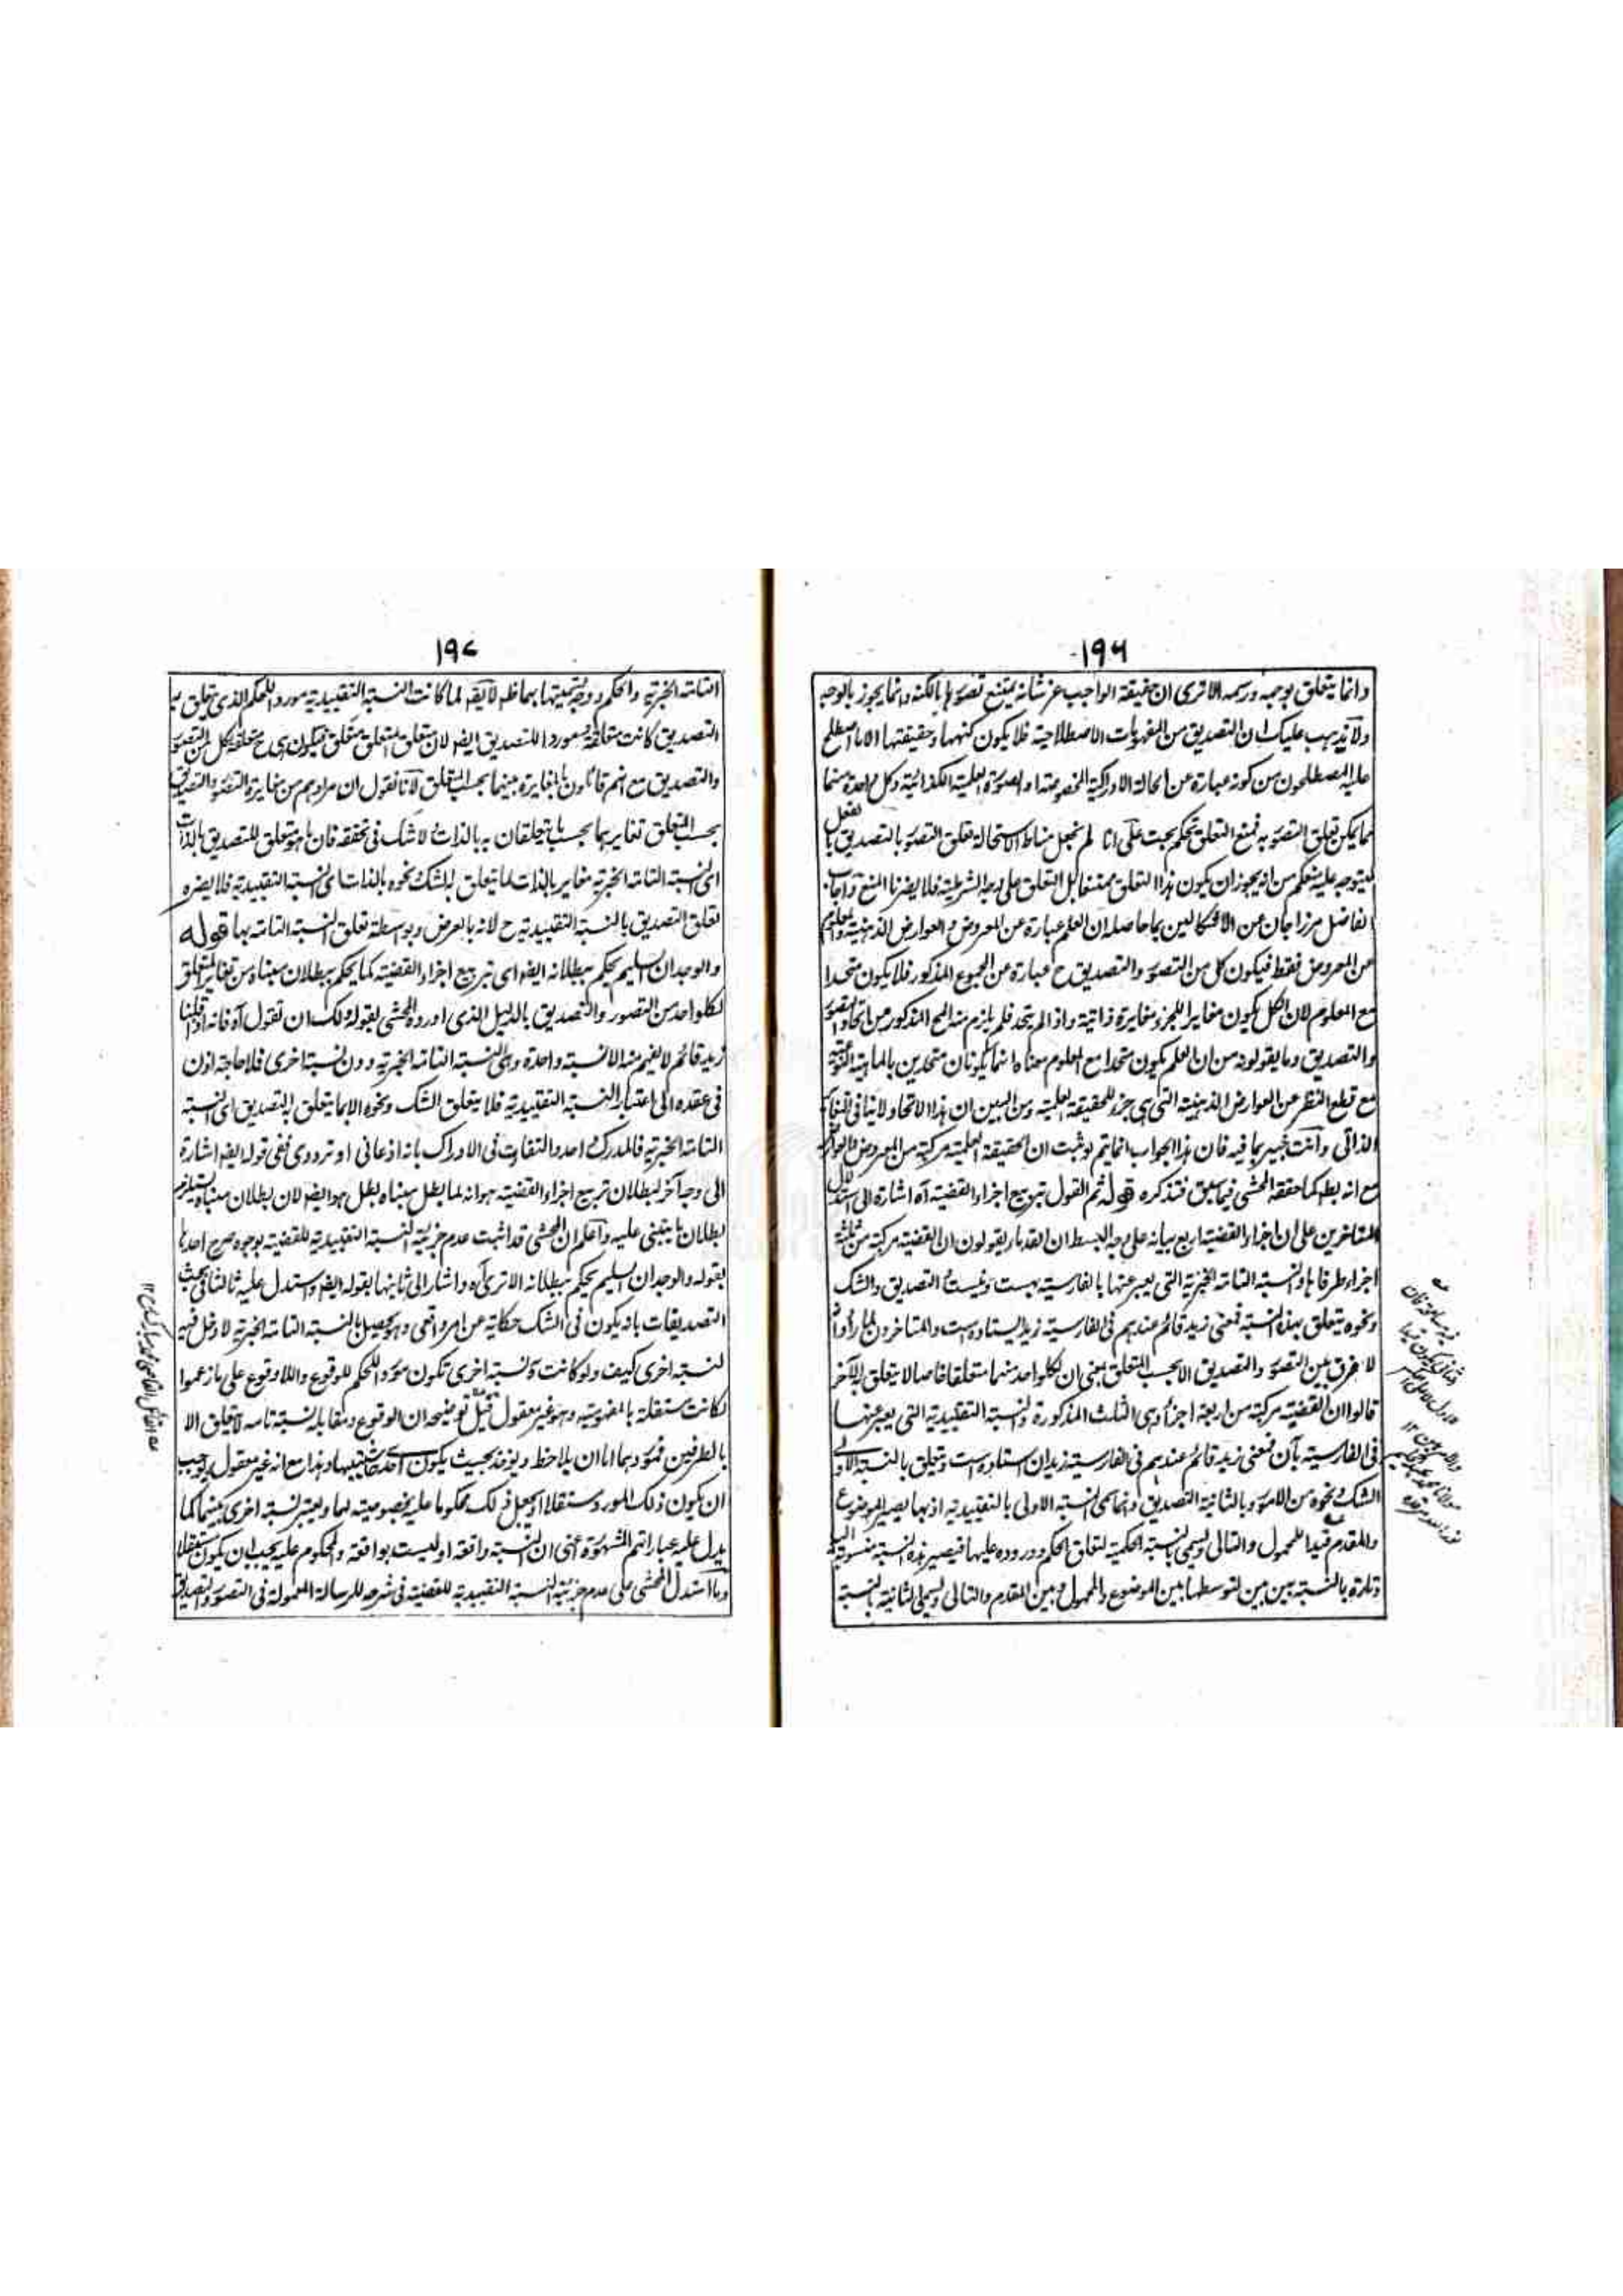 ١٩٦
وانما يتعلق بوجهه ورسمه الاترى ان حقيقة الواجب عز شانه يمتنع تصورها بالكنه وانما يجوز بالوجه
ولا يذهب عليك ان التصديق من المفهومات الاصطلاحية فلا يكون كنهها وحقيقتها الا ما اصطلح
عليه المصطلحون من كونه عبارة عن الحالة الادراكية المخصوصة او الصورة العلمية الكذائية وكل واحدة منهما
مما يمكن تعلق التصور به فمنع التعلق تحكم بحت على انا لم نجعل مناط الاستحالة تعلق التصور بالتصديق بالفعل
ليتوجه عليه منعكم من انه يجوز ان يكون هذا التعلق ممتنعا بل التعلق على وجه الشرطية فلا يضرنا المنع واجاب
الفاضل مرزا جان عن الاشكالين بما حاصله ان العلم عبارة عن المعروض والعوارض الذهنية والمعلوم
عن المعروض فقط فيكون كل من التصور والتصديق ح عبارة عن المجموع المذكور فلا يكون متحدا
مع المعلوم لان الكل يكون مغايرا للجزء مغايرة ذاتية واذا لم يتحد فلم يلزم منه المح المذكور من اتحاد التصور
والتصديق وما يقولونه من ان العلم يكون متحدا مع المعلوم معناه انهما يكونان متحدين بالماهية النوعية
مع قطع النظر عن العوارض الذهنية التى هى جزء للحقيقة العلمية ومن البين ان هذا الاتحاد لا ينافى التغاير
الذاتى وانت خبير بما فيه فان هذا الجواب انما يتم لو ثبت ان الحقيقة العلمية مركبة من المعروض والعوارض
مع انه بط كما حققه المحشى فيما سبق فتذكره قوله ثم القول بتربيع اجزاء القضية آه اشارة الى استدلال
المتاخرين على ان اجزاء القضية اربع بيانه على وجه البسط ان القدماء يقولون ان القضية مركبة من ثلثة
اجزاء طرفاها والنسبة التامة الخبرية التى يعبر عنها بالفارسية بهست ونيست التصديق والشك
ونحوه يتعلق بهذه النسبة فمعنى زيد قائم عندهم فى الفارسية زيد ايستاده است والمتاخرون لما رأوا انه
لا فرق بين التصور والتصديق الا بحسب المتعلق بمعنى ان لكل واحد منهما متعلقا خاصا لا يتعلق به الآخر
قالوا ان القضية مركبة من اربعة اجزاء هى الثلث المذكورة والنسبة التقييدية التى يعبر عنها
فى الفارسية بآن فمعنى زيد قائم عندهم فى الفارسية زيد آن استاده است ويتعلق بالنسبة الاولى
الشك ونحوه من الامور وبالثانية التصديق وانما سمى النسبة الاولى بالتقييدية اذ بها يصير الموضوع
والمقدم قيدا للمحمول والتالى ويسمى بالنسبة الحكمية لتعلق الحكم ووروده عليها فيصير هذه النسبة منسوبة اليه
وتارة بالنسبة بين بين لتوسطها بين الموضوع والمحمول وبين المقدم والتالى ويسمى الثانية بالنسبة
١٩٧
التامة الخبرية والحكم ووجه تسميتها بهما ظ لا يقه لما كانت النسبة التقييدية مورد الحكم الذى يتعلق به
التصديق كانت متعلقة ومورد اللتصديق ايضه لان متعلق المتعلق متعلق فيكون هى ح متعلقة لكل من التصور
والتصديق مع انهم قائلون بالمغايرة بينهما بحسب المتعلق لانا نقول ان مرادهم من مغايرة التصور والتصديق
بحسب المتعلق تغايرهما بحسب ما يتعلقان به بالذات ولا شك فى تحققه فان ما هو متعلق للتصديق بالذات
اى النسبة التامة الخبرية مغاير بالذات لما يتعلق به الشك ونحوه بالذات اى النسبة التقييدية فلا يضره
تعلق التصديق بالنسبة التقييدية ح لانه بالعرض وبواسطة تعلق النسبة التامة بها قوله
والوجدان السليم يحكم ببطلانه ايضه اى بتربيع اجزاء القضية كما يحكم ببطلان مبناه من تغاير المتعلق
لكل واحد من التصور والتصديق بالدليل الذى اورده المحشى بقوله ولك ان تقول آه فانه اذا قلنا
زيد قائم لا يفهم منه الا نسبة واحدة وهى النسبة التامة الخبرية دون نسبة اخرى فلا حاجة اذن
فى عقده الى اعتبار النسبة التقييدية فلا يتعلق الشك ونحوه الا بما يتعلق به التصديق اى النسبة
التامة الخبرية فالمدرك واحد والتفاوت فى الادراك بانه اذعانى او ترددى ففى قوله ايضه اشارة
الى وجه آخر لبطلان تربيع اجزاء القضية هو انه لما بطل مبناه بطل هو ايضه لان بطلان مبناه يستلزم
بطلان ما يبتنى عليه واعلم ان المحشى قد اثبت عدم جزئية النسبة التقييدية للقضية بوجوه صرح احدها
بقوله والوجدان السليم يحكم ببطلانه الاترى آه واشار الى ثانيها بقوله ايضه واستدل عليه ثالثا فى بحث
التصديقات بانه يكون فى الشك حكاية عن امر واقعى وهو يحصل بالنسبة التامة الخبرية لا دخل فيه
لنسبة اخرى كيف ولو كانت ثمه نسبة اخرى تكون مورد الحكم للوقوع واللاوقوع على ما زعموا
لكانت مستقلة بالمفهومية وهو غير معقول قيل توضيحه ان الوقوع ومقابله نسبة تامة لا يتعلق الا
بالطرفين فمورد هما اما ان يلاحظ ويوخذ بحيث يكون احد حاشيتيها وهذا مع انه غير معقول يوجب
ان يكون ذلك المورد مستقلا او يجعل ذلك محكوما عليه بخصوصية لها ويعتبر نسبة اخرى بينهما كما
يدل عليه عباراتهم المشهورة اعنى ان النسبة واقعة او ليست بواقعة والمحكوم عليه يجب ان يكون مستقلا
وما استدل المحشى على عدم جزئية النسبة التقييدية للقضية فى شرحه للرسالة المعمولة فى التصور والتصديق